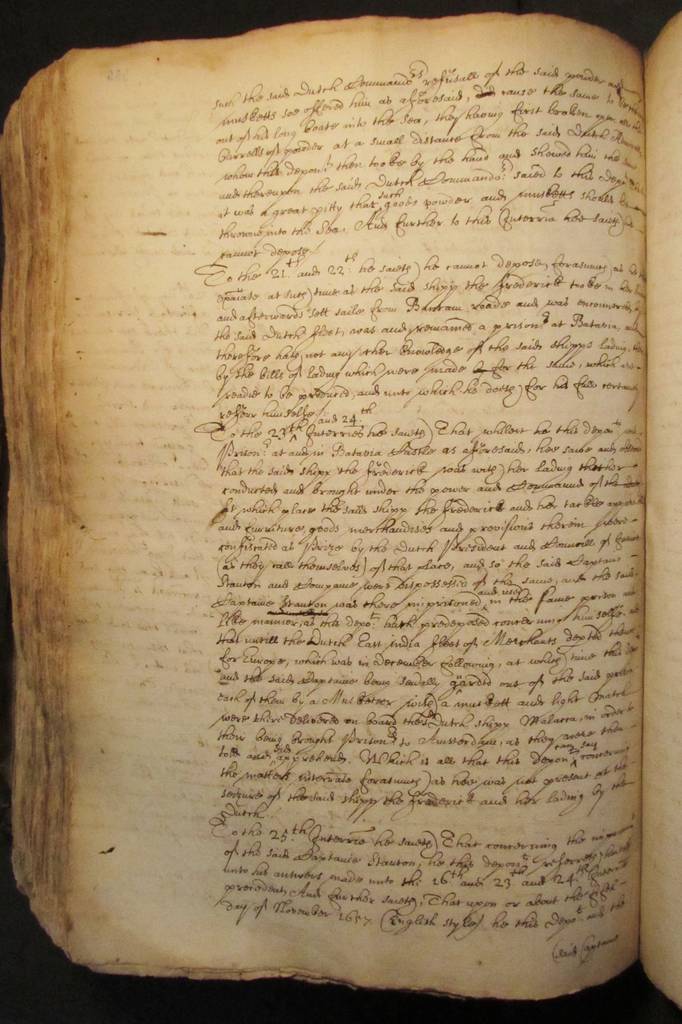 such the said Dutch Commando:rs refusall of the said powder and
musketts soe offered him as aforesaid, did cause the same to be
out of his long boate into the Sea, they having first broken open
barrells of powder at a small distance from the said Dutch
whom this depon:t then tooke by the hand and shewed him the
and thereupon the said Dutch Commando:r saied to this depo:t
it was a great pitty that such goode powder and musketts should be
throwne into the Sea. And further to this Interrie hee saieth he
cannot depose
To the 21:th and 22:th he saieth he cannot depose, forasmuch as he
at such time as the said shipp the Frederick tooke in her
and afterwards sett saile from Bantam roade and was encountered by
the said Dutch fleet, was and remained a prison:r at Batavia, and
therefore hath not any other knowledge of the said shipps lading, then
by the bills of lading which were made for the same, which are
readie to be produced, and unto which he doeth for his full certainty
referr himselfe
To the 23:th and 24:th Interries hee saieth That whilest he this depon:t was
Prison:r at and in Batavia Castle as aforesaid, hee sawe and observed
that the said shipp the Frederick was with her lading thether
conducted and brought under the power and Command of the
at which place the said shipp the Frederick and her tackle
and furniture goods merchandises and provisions therein were
confiscated as Prize by the Dutch President and Councell of
(as they call themselves) of that place, and so the said Captaine
Stanton and Companie were dispossessed of the same, and the said
Captaine Stanton was there imprisoned and used in the same prison and
like manner, as this depo:t hath predeposed concerning himselfe
that untill the Dutch East India fleet of Merchants depted thence
for Europe, which was in December following, at which time this depo:t
and the said Captaine being severally garded out of the said prison
each of them by a Musketeer with a muskett and light match
were there delivered on board the Dutch shipp Malacca, in order to
their being brought Prison:rs to Amsterdam, as they were then
told and did apprehend. Which is all that this depon:t can say concerning
the matters interrate forasmuch as hee was not present at the
seizure of the said shipp the Frederick and her lading by the
Dutch.
To the 25:th Interrie hee saieth That concerning the
of the said Captaine Stanton, he this depon:t referreth himselfe
unto his answers made unto the 16:th and 23:th and 24:th Interries
precedent, And further saieth, That upon or about the
day of November 1657 (English style) he this Depo:t and the
said Captaine